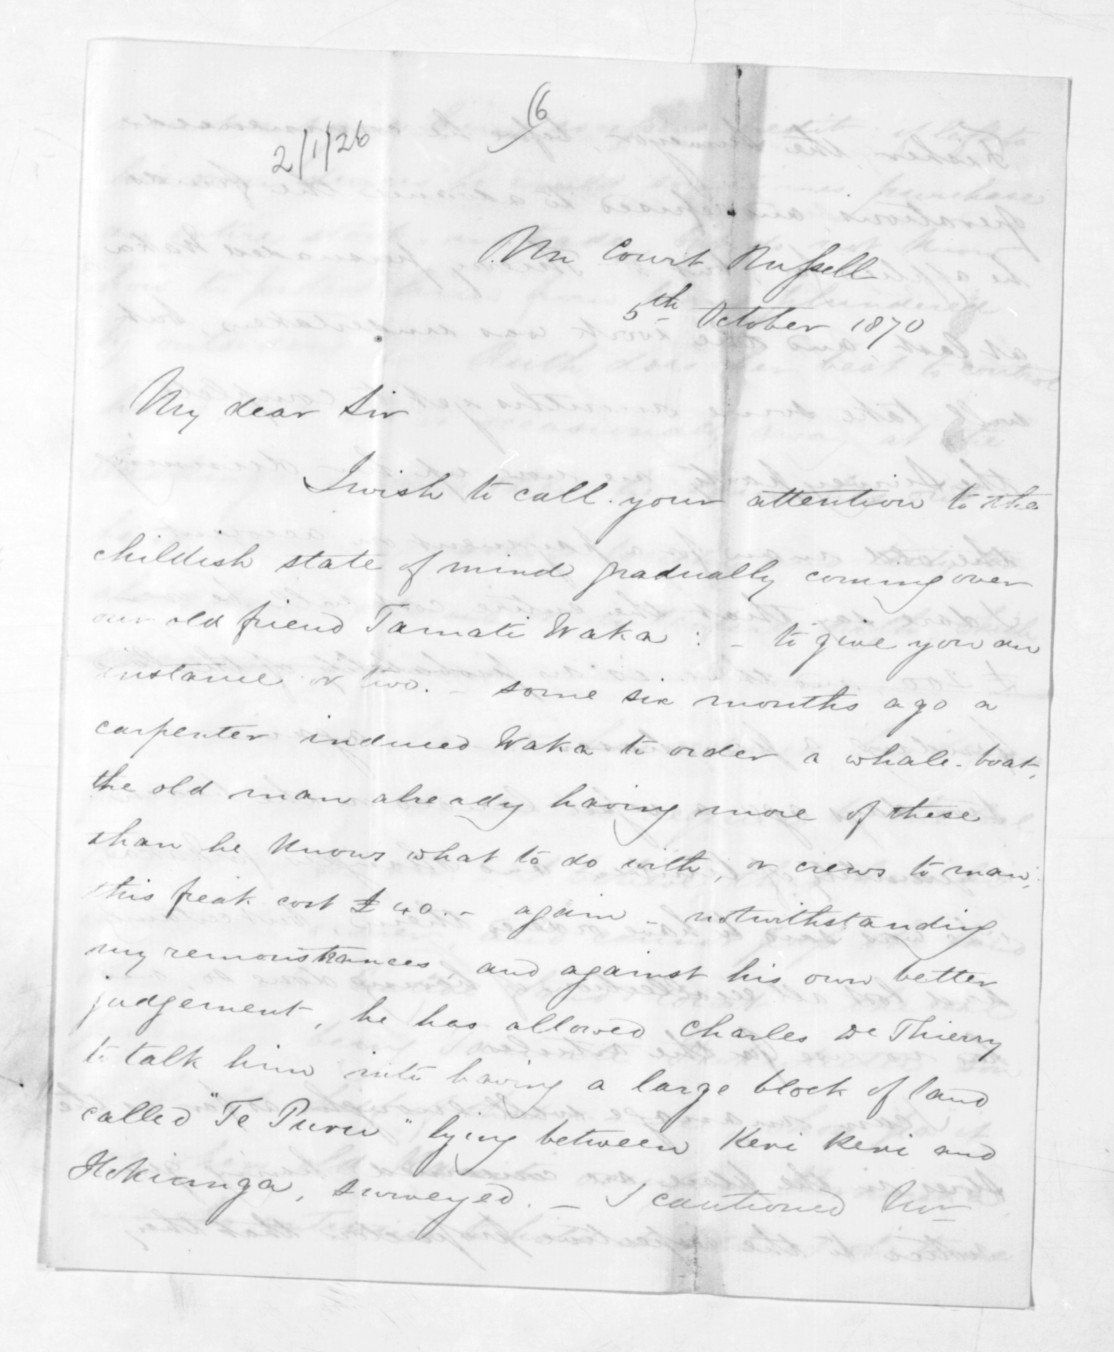 (6
2/1/26
Mn Court Russell
5th October 1870
My dear Sir
I wish to call your attention to the
childish state of mind gradually coming over
our old friend Tamati Waka : - to give you an
instance or two. - some six months ago a
carpenter induced Waka to order a whale-boat,
the old man already having more of these
than he knows what to do with, or crews to man;
this freak cost £40. - again - notwithstanding
my remonstrances, and against his own better
judgement, he has allowed Charles De Thierry
to talk him into having a large block of land
called "Te Puru" lying between Keri Keri and
Hokianga, surveyed. - I cautioned him